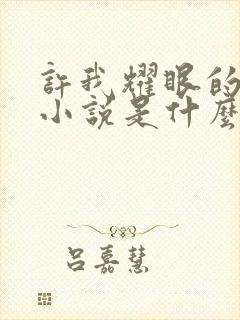 許我耀眼的
小說是什麼
呂嘉慧